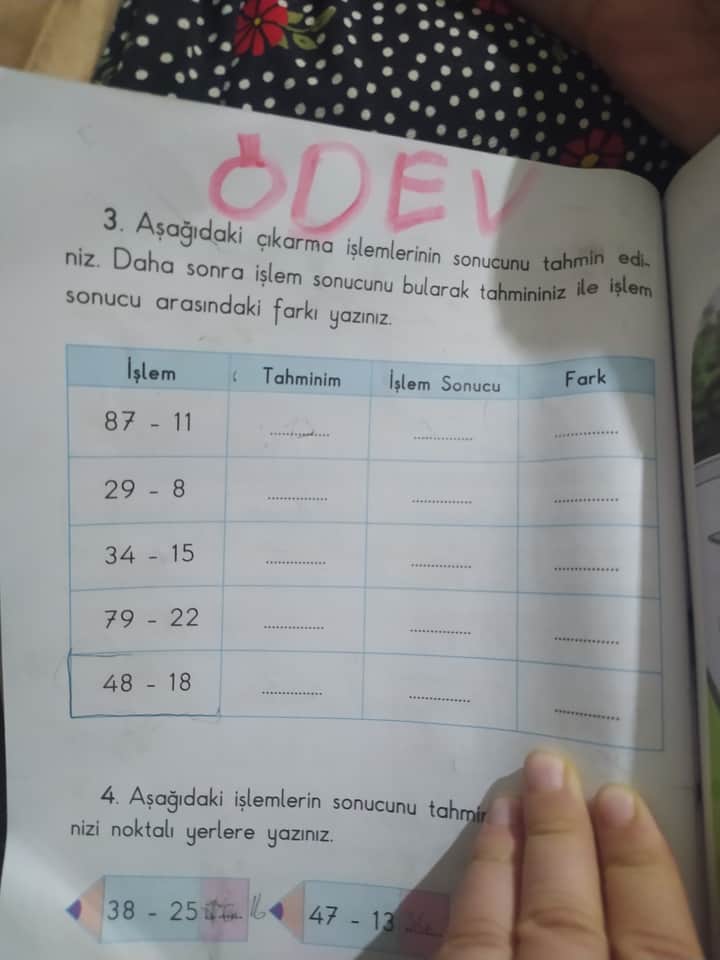 ÖDEV
3. Aşağıdaki çıkarma işlemlerinin sonucunu tahmin edi-
niz. Daha sonra işlem sonucunu bularak tahmininiz ile işlem
sonucu arasındaki farkı yazınız.
İşlem Tahminim İşlem Sonucu Fark
87 - 11 .............. .............. ..............
29 - 8 .............. .............. ..............
34 - 15 .............. .............. ..............
79 - 22 .............. .............. ..............
48 - 18 .............. .............. ..............
4. Aşağıdaki işlemlerin sonucunu
nizi noktalı yerlere yazınız.
38 - 25 16 47 - 13